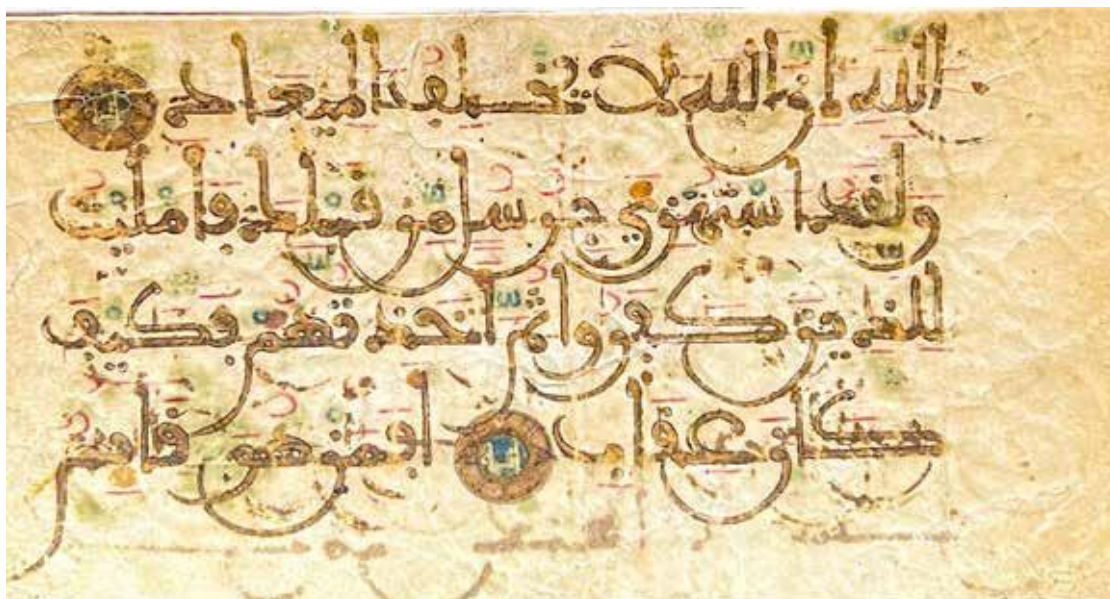 الله ان الله لا يخلف الميعاد
ولقد استهزي برسل من قبلك فامليت
للذين كفروا ثم اخذتهم فكيف
كان عقاب افمن هو قايم